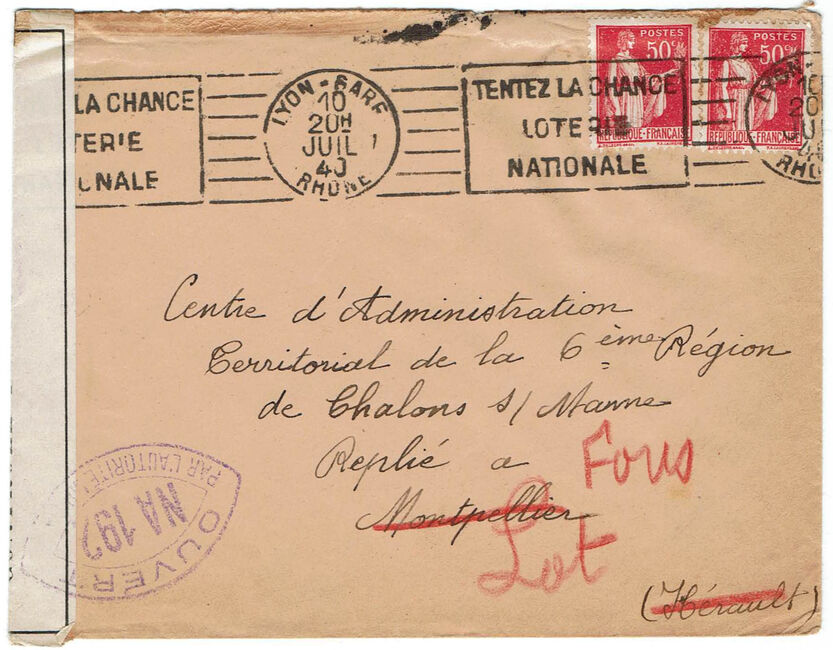 LA CHANCE
TERIE
ONALE
LYON-GARE
10
20H
JUIL
40
RHONE
TENTEZ LA CHANCE
LOTERIE
NATIONALE
POSTES
50c
REPUBLIQUE-FRANÇAISE
POSTES
50c
REPUBLIQUE-FRANÇAISE
LYON-
10
20
JUI
40
RHO
Centre d'Administration
Territorial de la 6ème Région
de Chalons s/ Marne
Replié a Fons
Montpellier
Lot
(Hérault)
OUVERT
PAR L'AUTORITÉ